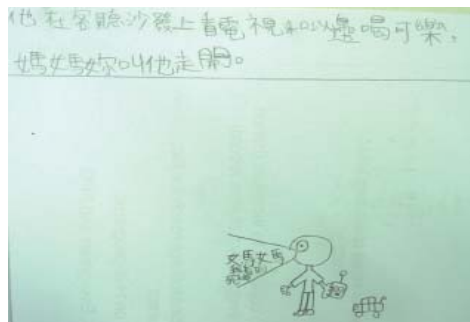 他在客聽沙發上看電視和以邊喝可樂，
媽媽妳叫他走開。
媽媽